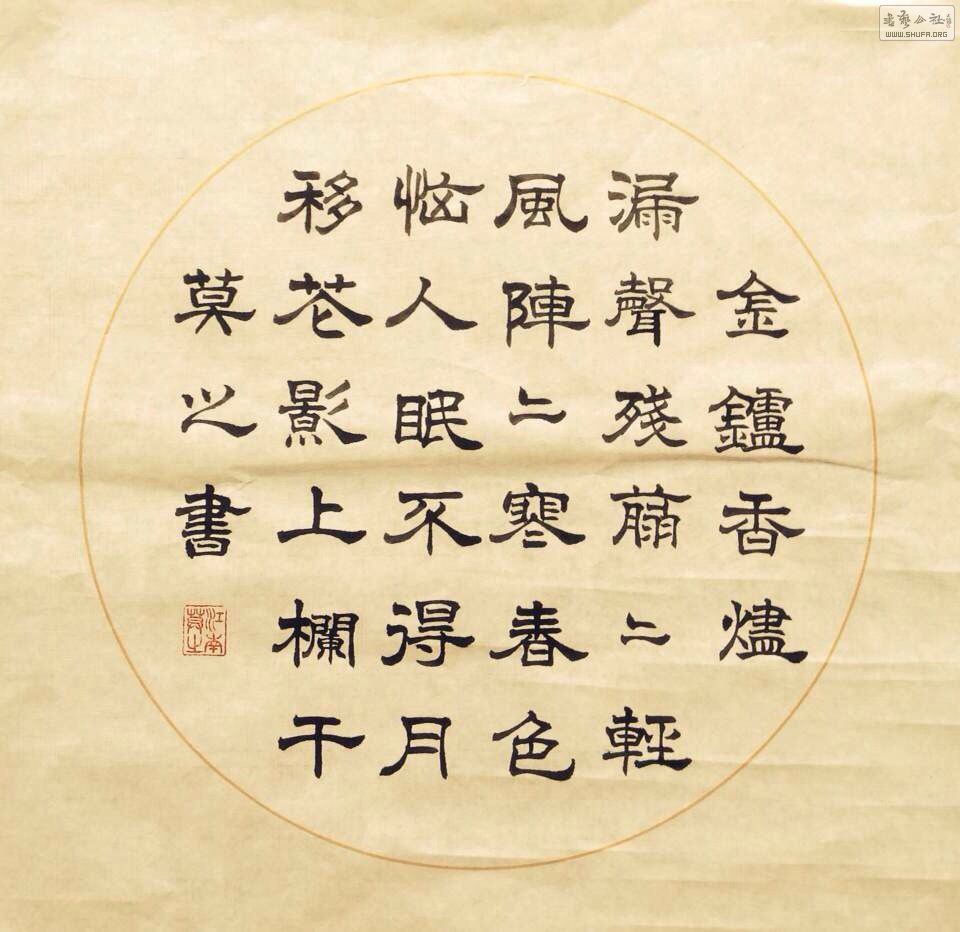 金鑪香燼
漏聲殘翦二輕
風陣二寒春色
恼人眠不得月
移花影上欄干
莫之書
江南莫之
书艺公社
WWW.SHUFA.ORG